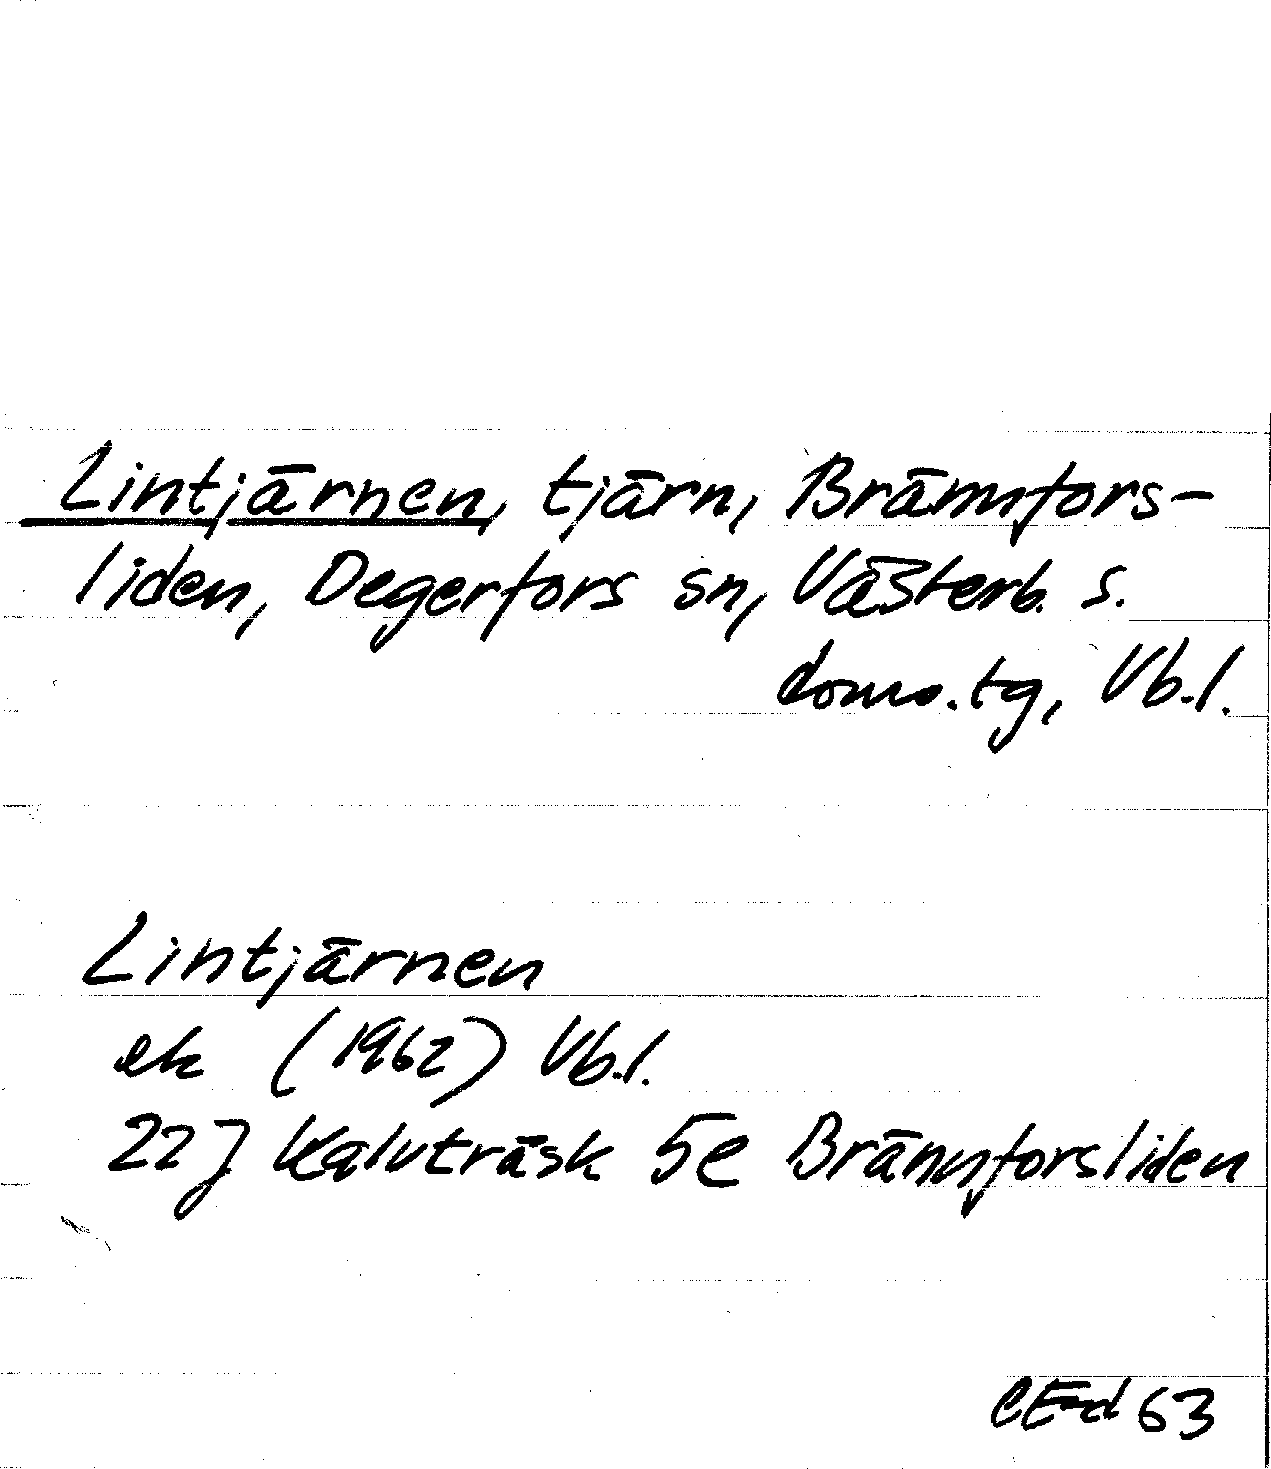 Lintjärnen, tjärn, Brännfors-
liden, Degerfors sn, Västerb. s.
doms.tg, Vb.l.
Lintjärnen
ek (1962) Vb.l.
22J Kalvträsk 5e Brännforsliden
CE-d 63